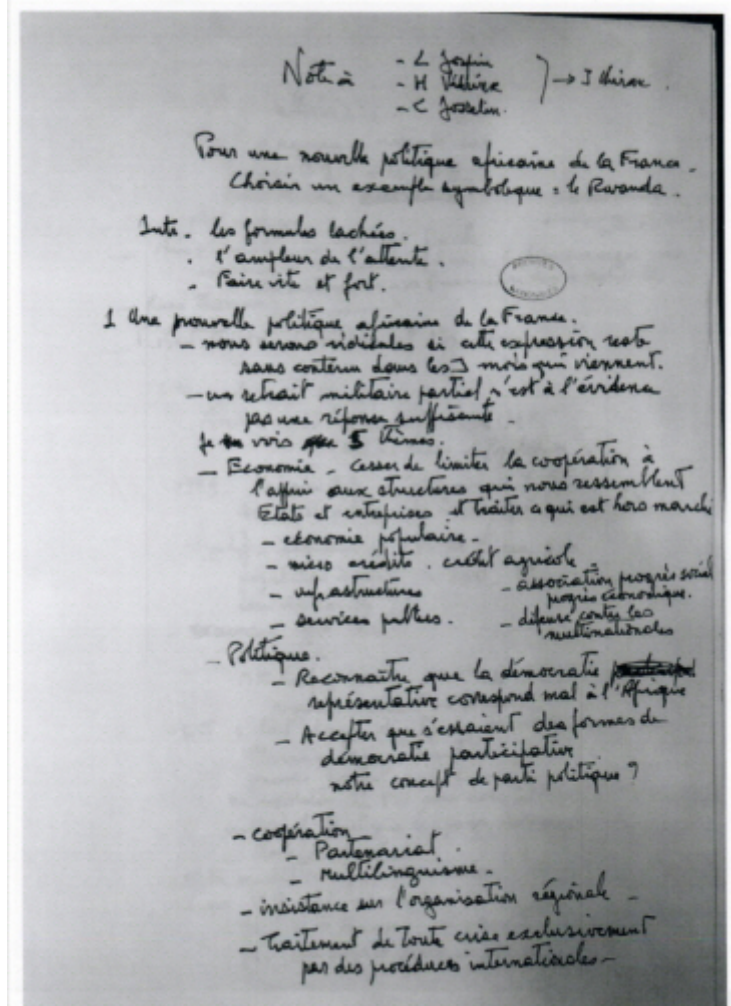 Note à
- L Jospin
- H Védrine
- C Josselin.
→ J Chirac.
Pour une nouvelle politique africaine de la France.
Choisir un exemple symbolique : le Rwanda.
Intr. les formules lachées.
. l'ampleur de l'attente.
. Faire vite et fort.
1 Une nouvelle politique africaine de la France.
- nous serons ridicules si cette expression reste
sans contenu dans les 3 mois qui viennent.
- un retrait militaire partiel n'est à l'évidence
pas une réponse suffisante.
Je vois 5 thèmes.
- Economie - cesser de limiter la coopération à
l'appui aux structures qui nous ressemblent
Etats et entreprises et traiter ce qui est hors marché
- économie populaire -
- micro crédits. crédit agricole -
- infrastructures
- services publics.
- association progrès social
progrès économique.
- défense contre les
multinationales
- Politique.
- Reconnaître que la démocratie
représentative correspond mal à l'Afrique
- Accepter que s'essaient des formes de
démocratie participative
notre concept de parti politique ?
- coopération
- Partenariat.
- Multilinguisme -
- insistance sur l'organisation régionale -
- Traitement de toute crise exclusivement
par des procédures internationales -